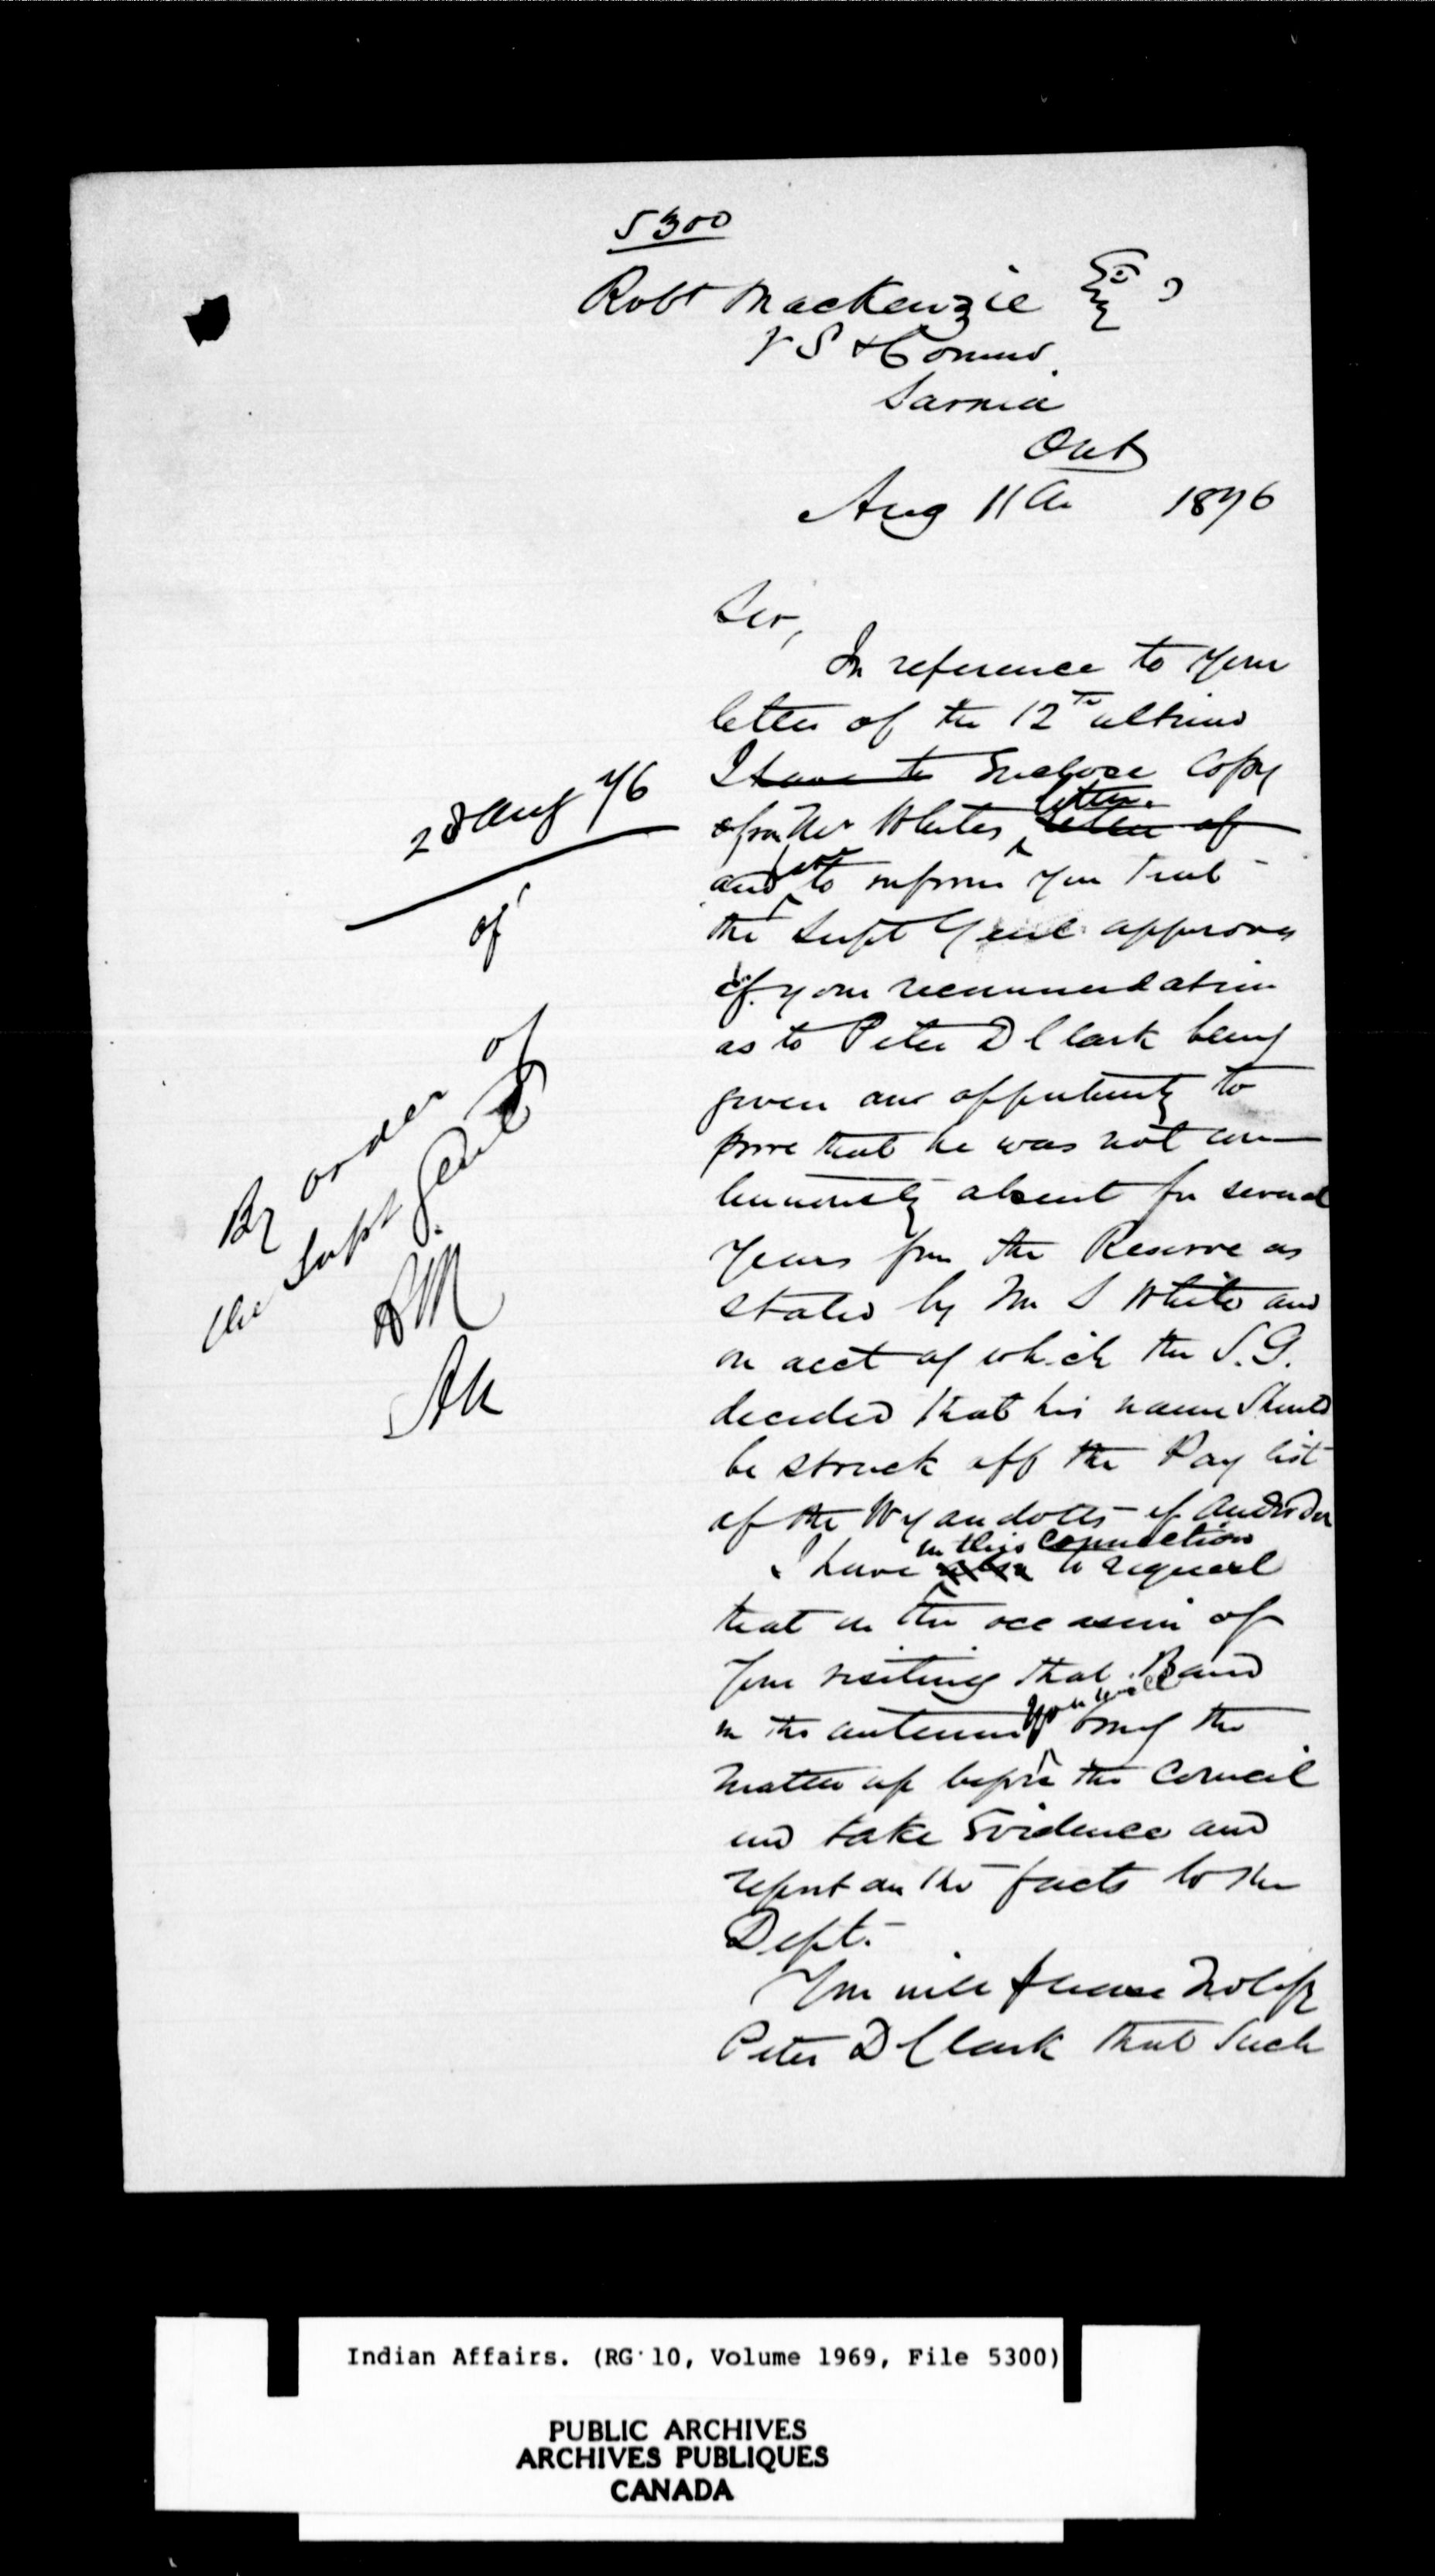 5300
Robt Mackenzie Esq
V S & Commr
Sarnia
Ont
Aug 11th 1876
Sir,
In reference to your
letter of the 12th ultimo
I have to Enclose Copy
from Mr Whites letter letter of
and to inform you that
the Supt Genl approves
of your recommendation
as to Peter D Clark being
given an opportunity to
prove that he was not con
tinuously absent for several
years from the Reserve as
stated by Mr S White and
on acct of which the S.G.
decided that his name should
be struck off the Pay list
of the Wyandotts of Anderdon
in this Connection
I have also to request
that on the occasion of
your visiting that Band
in the autumn you will bring the
matter up before the Council
and take Evidence and
report on the facts to the
Dept.
You will please Notify
Peter D Clark that such
28 Aug 76
of
By order of
the Supt Genl
RM
Indian Affairs. (RG 10, Volume 1969, File 5300)
PUBLIC ARCHIVES
ARCHIVES PUBLIQUES
CANADA